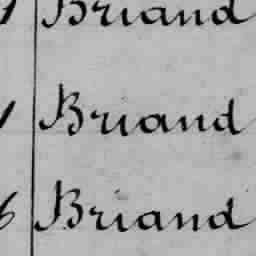 Briand
Briand
6 Briand